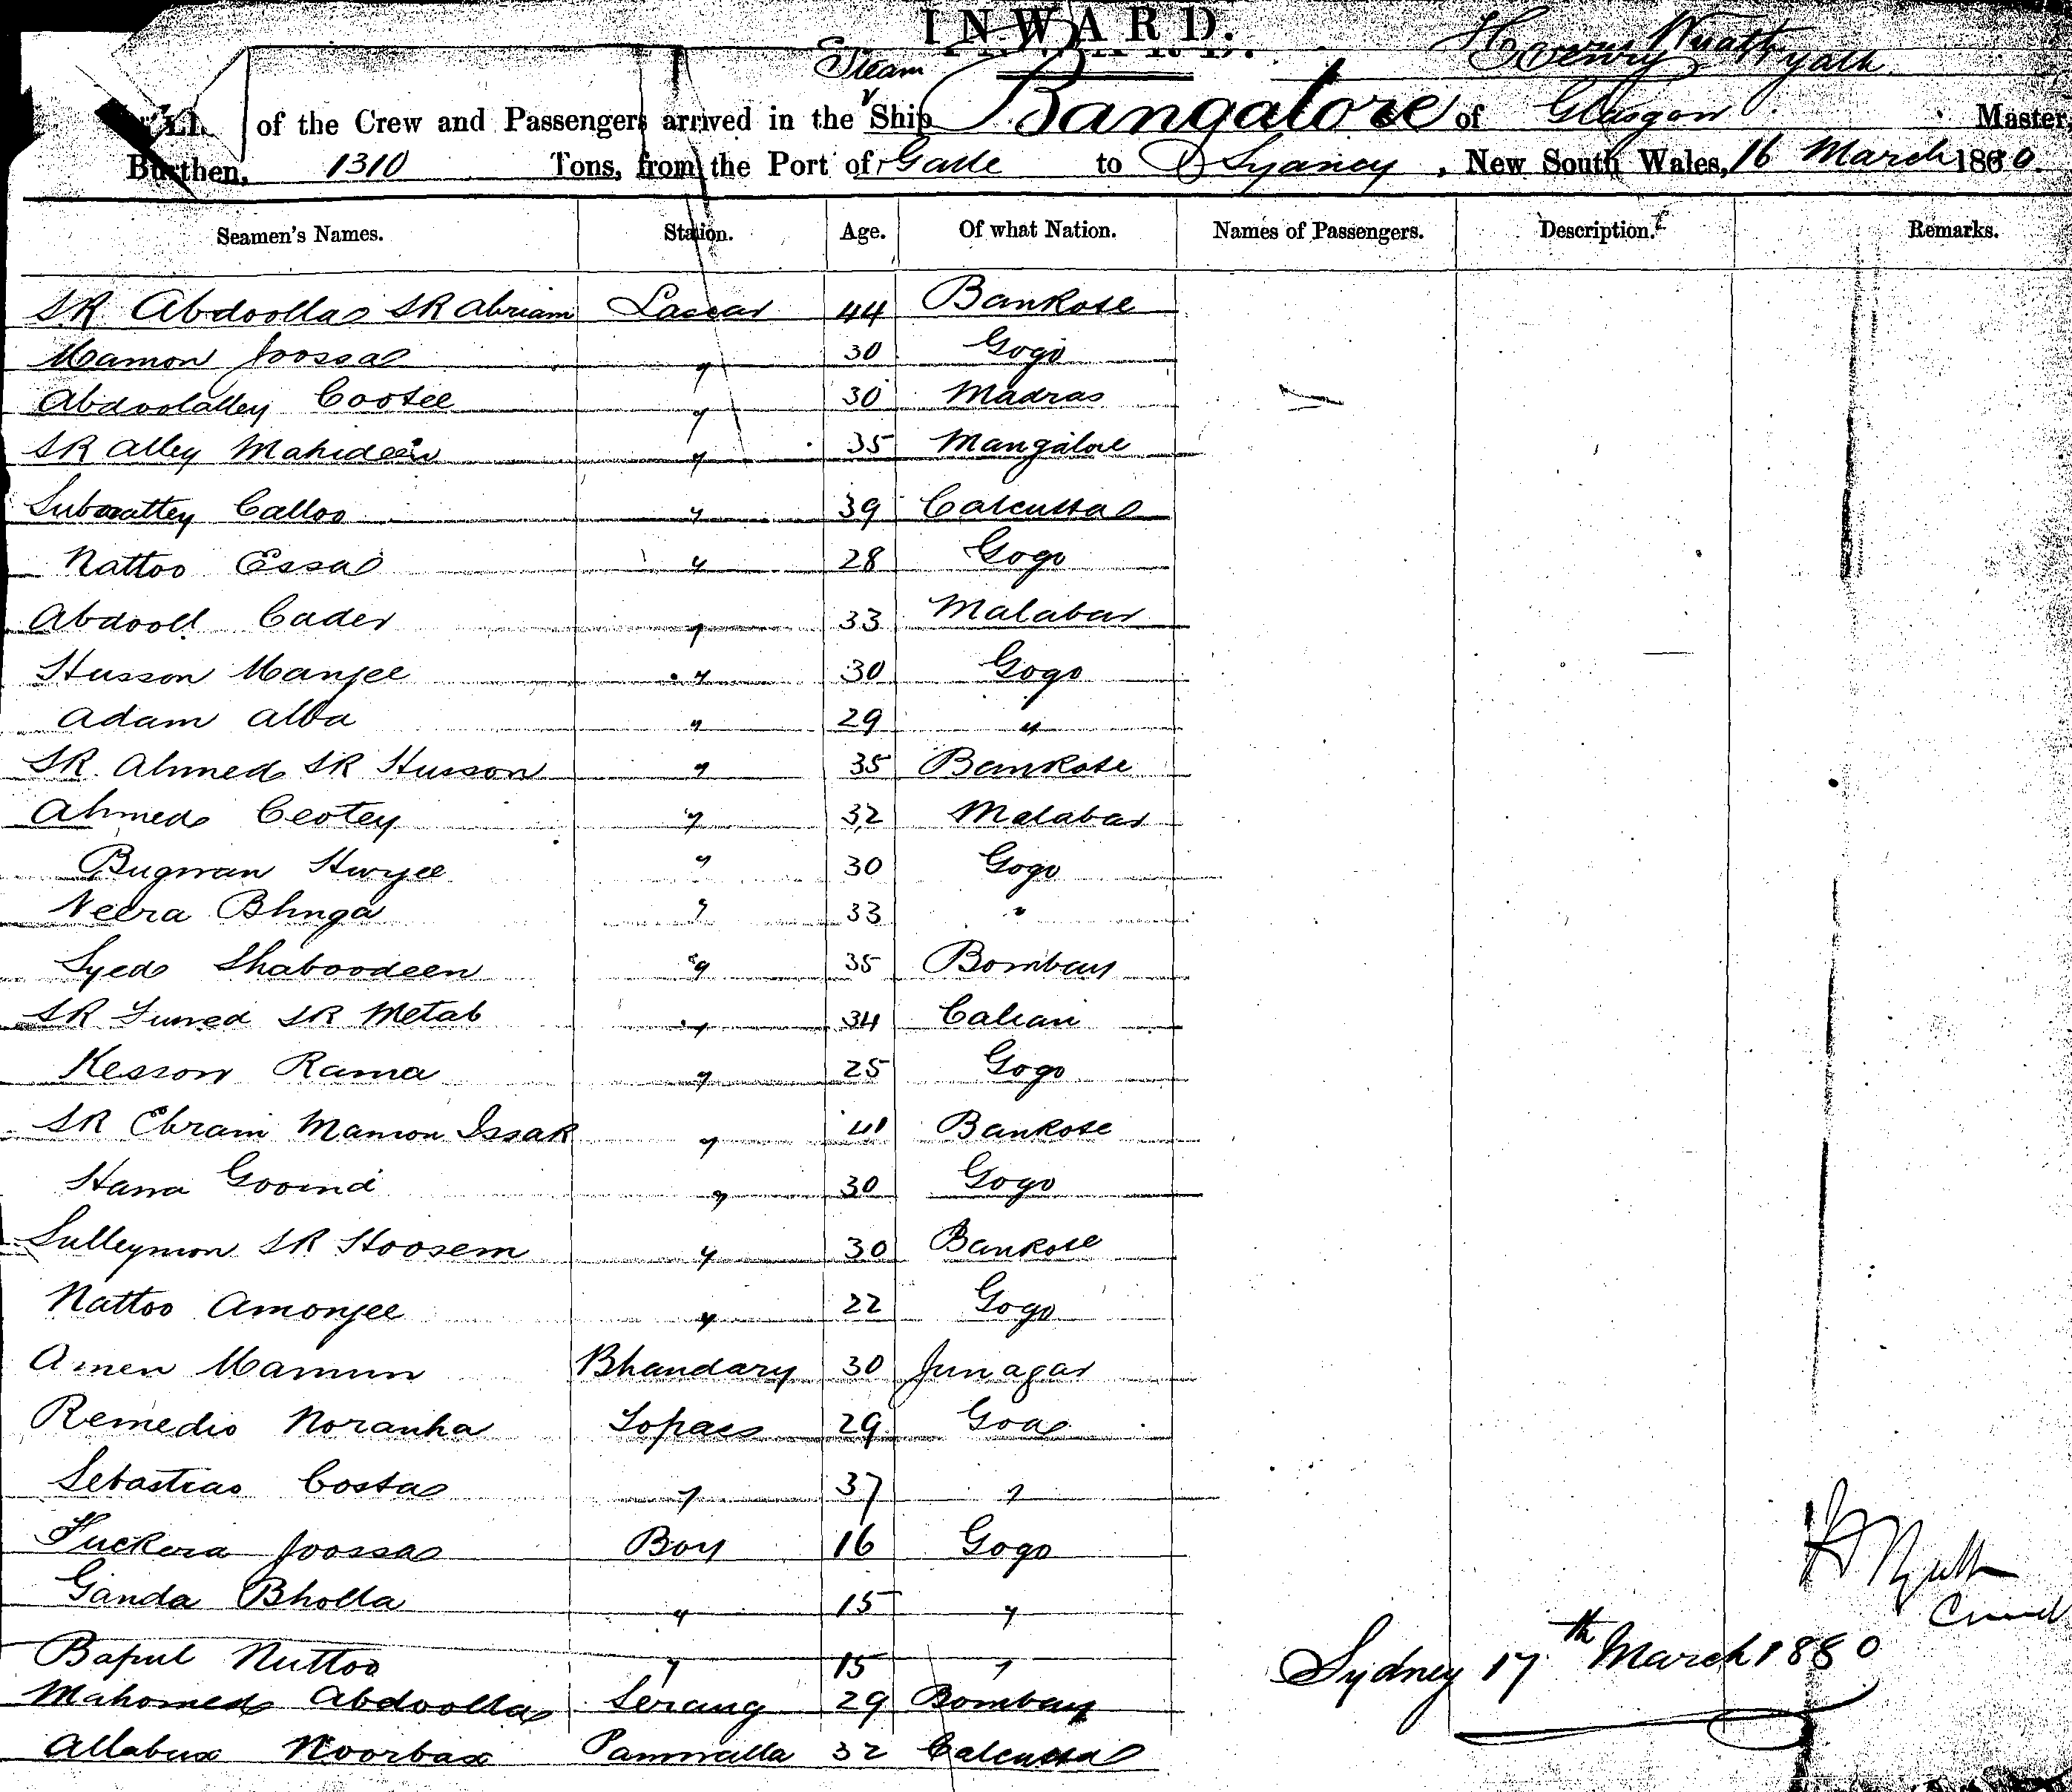 INWARD.
Henry Wyatt
of the Crew and Passengers arrived in the Steam Ship Bangalore of Glasgow Master,
Burthen, 1310 Tons, from the Port of Galle to Sydney, New South Wales, 16 March 1880.
Seamen's Names. Station. Age. Of what Nation. Names of Passengers. Description. Remarks.
SR Abdoolla SR Abriam Lascar 44 Bankote
Mamon Joossa " 30 Gogo
Abdoolalley Cootee " 30 Madras
SR Alley Mahideen " 35 Mangalore
Calloo " 39 Calcutta
Nattoo Essa " 28 Gogo
Abdool Cader " 33 Malabar
Husson Manjee " 30 Gogo
Adam Alba " 29 "
SR Ahmed SR Husson " 35 Bankote
Ahmed Cootey " 32 Malabar
Bugwan " 30 Gogo
Neera Bhnga " 33 "
Syed Shaboodeen " 35 Bombay
SR SR Metab " 34 Calian
Kesson Rama " 25 Gogo
SR Ebram Mamon Issak " 41 Bankote
Govind " 30 Gogo
Sulleymon SR Hoosem " 30 Bankote
Nattoo Amonjee " 22 Gogo
Amen Mamun Bhandary 30 Junagar
Remedio Noranha Topass 29 Goa
Sebastiao Costa " 37 "
Fuckera Joossa Boy 16 Gogo
Ganda Bholla " 15 "
Bapul Nuttoo " 15 "
Mahomed Abdoolla Serang 29 Bombay
Allabux Noorbax Panniwalla 32 Calcutta
H Wyatt
Sydney 17th March 1880